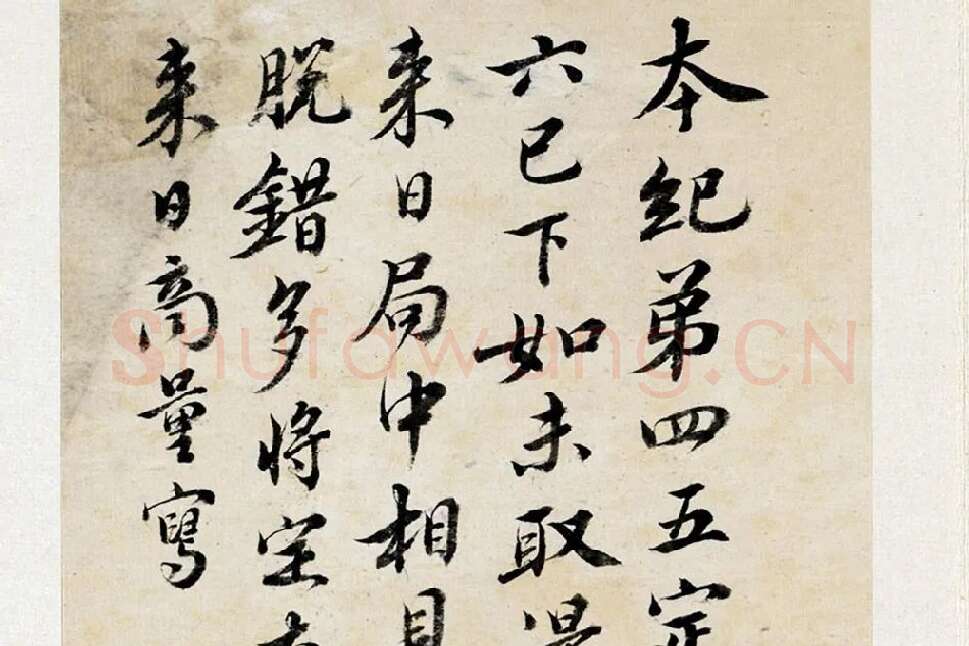 本紀弟四五定
六已下如未取
来日局中相見
脱錯多將定
来日商量寫
Shufawang.CN